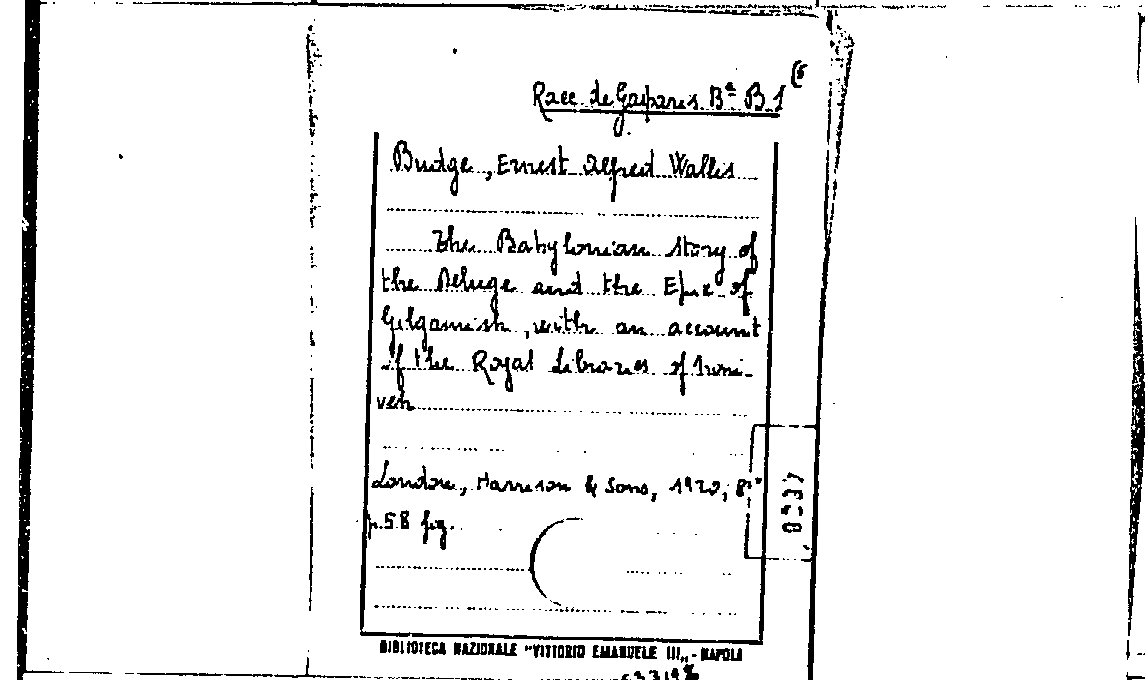 Racc. de Gasparis Bª B 1 (5
Budge, Ernest Alfred Wallis
The Babylonian story of
the Deluge and the Epic of
Gilgamish, with an account
of the Royal Libraries of Nini-
veh
London, Harrison & Sons, 1920, 8°
p. 58 fig.
BIBLIOTECA NAZIONALE "VITTORIO EMANUELE III„ - NAPOLI